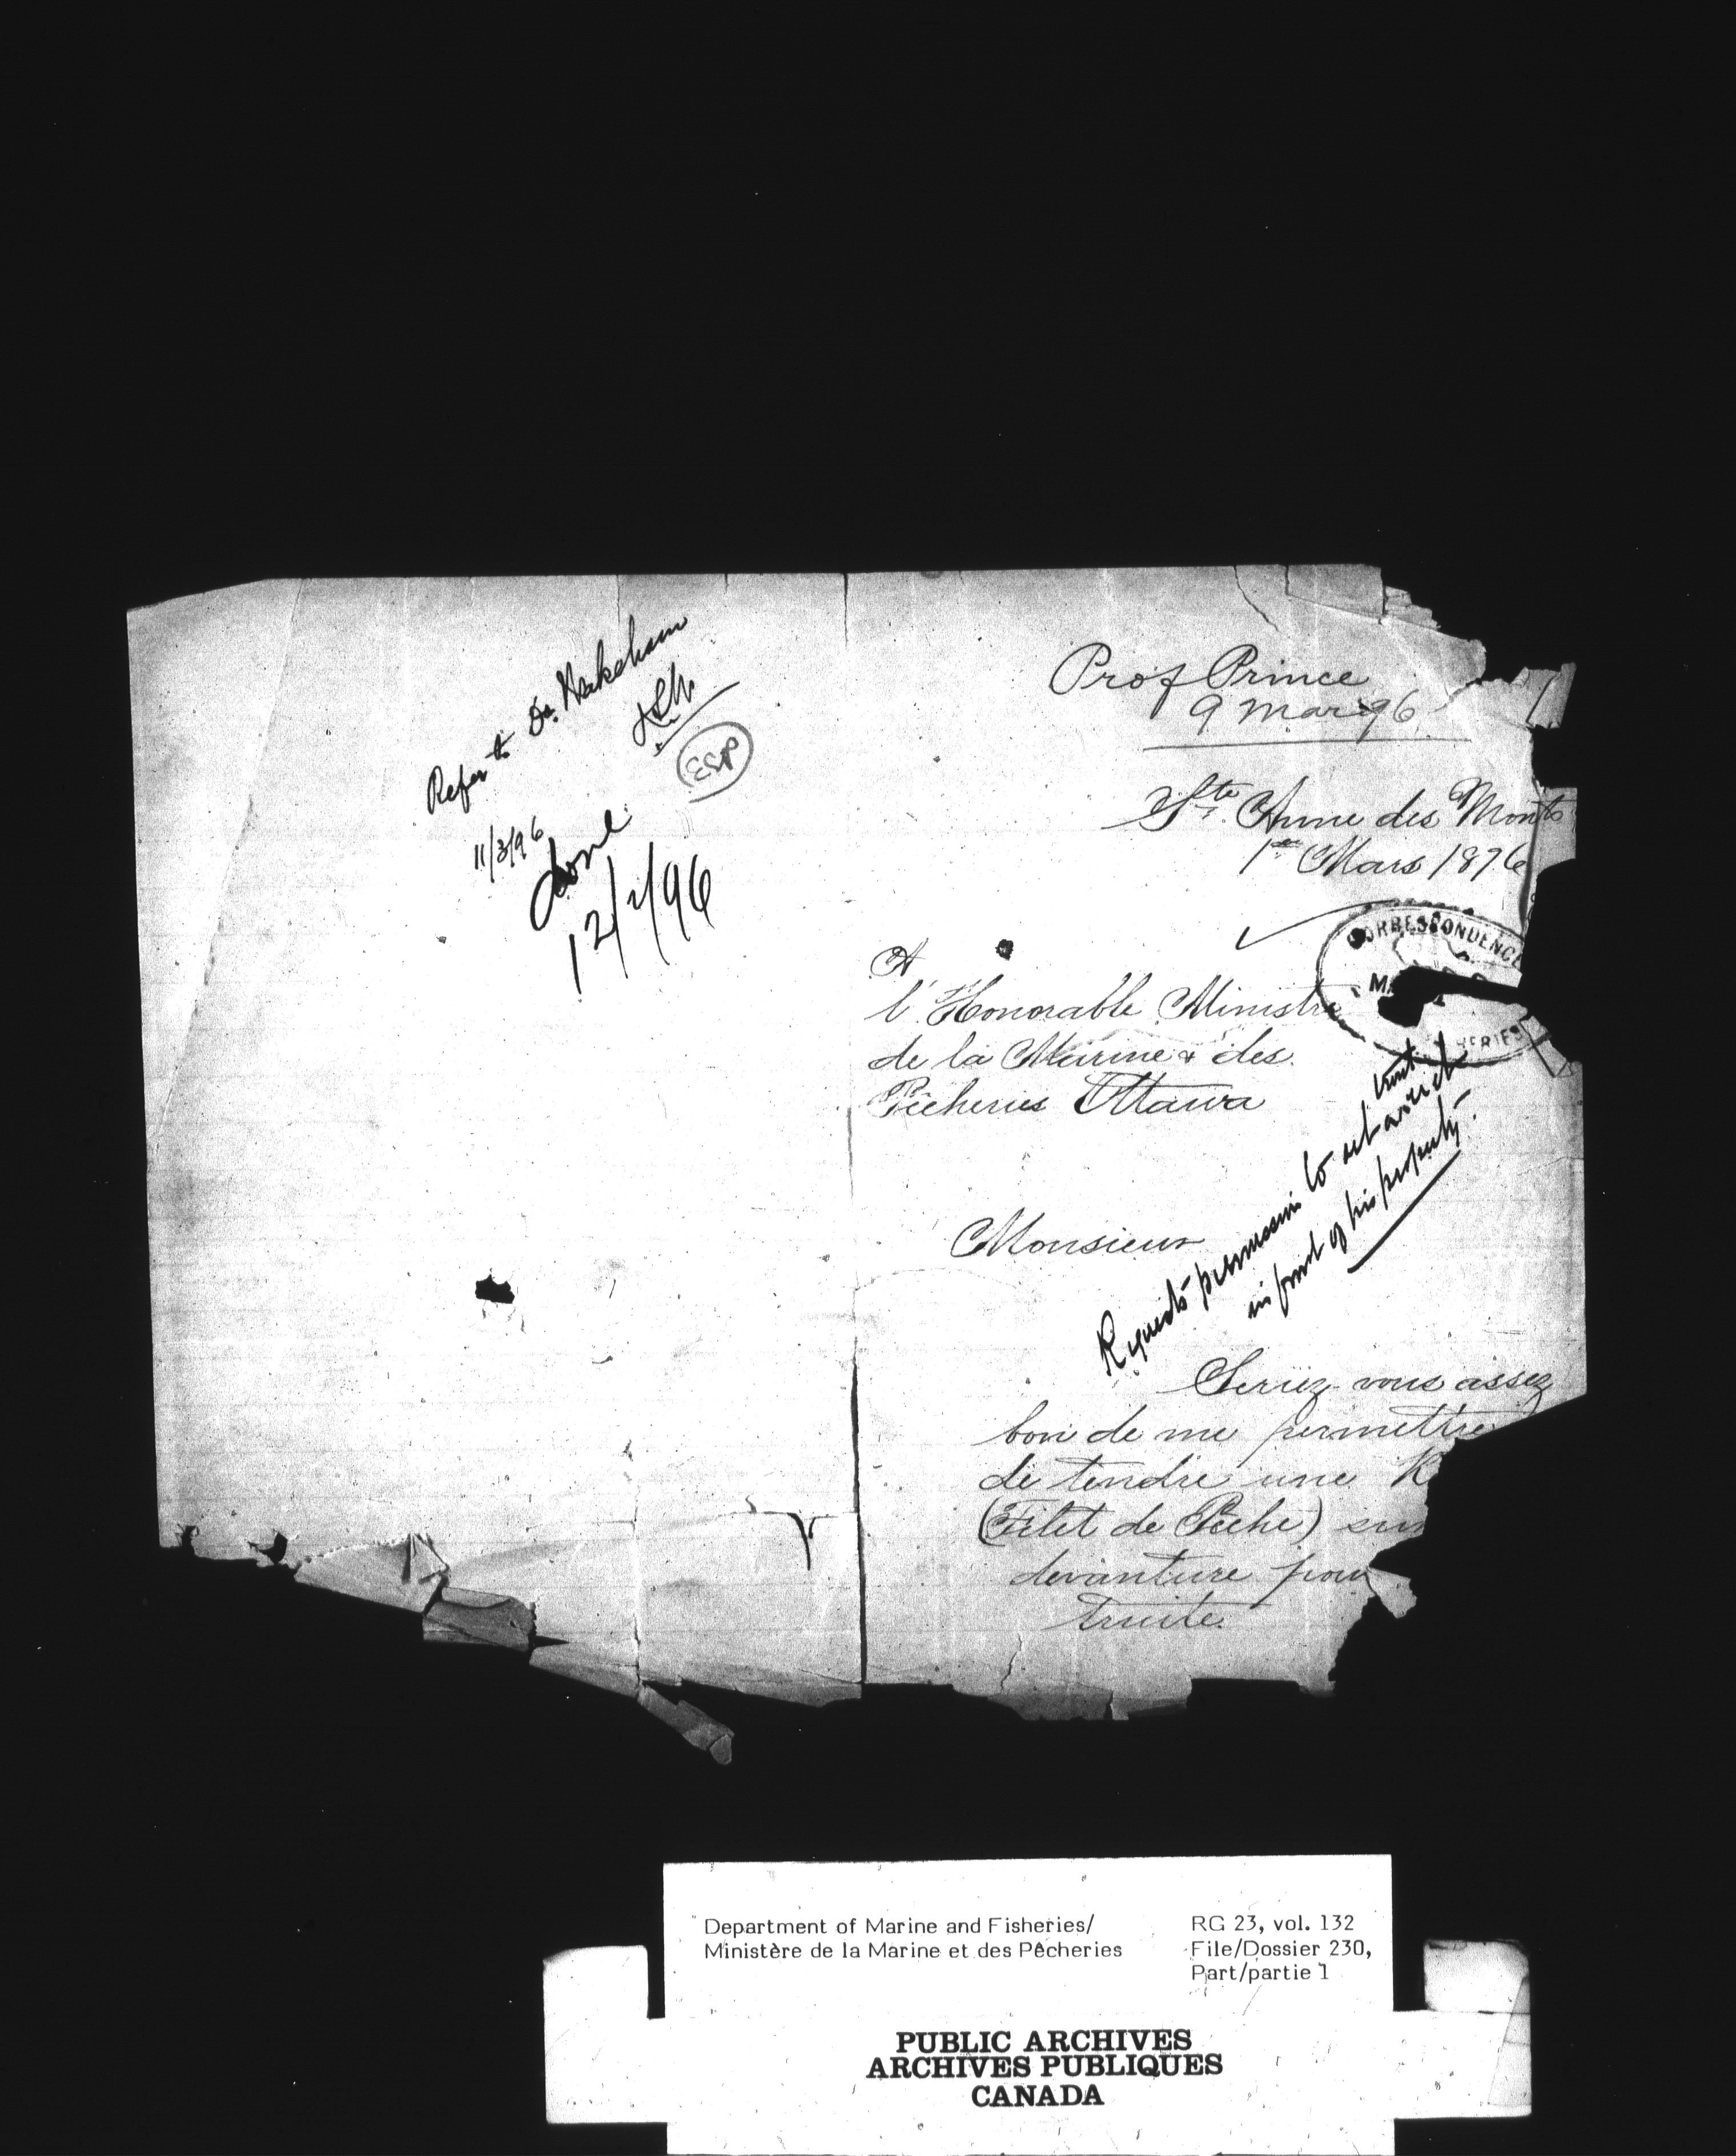 Refer to Dr. Wakeham
11/3/96
ESP
done
12/3/96
Prof Prince
9 Mar 96
Ste Anne des Monts
1er Mars 1896
CORRESPONDENCE
A
l'Honorable Ministre
de la Marine & des
Pêcheries Ottawa
Requests permission to set a trout net
in front of his property.
Monsieur
Seriez-vous assez
bon de me permettre
de tendre une R
(Filet de Pêche) sur
devanture pour
truite.
Department of Marine and Fisheries/
Ministère de la Marine et des Pêcheries
RG 23, vol. 132
File/Dossier 230,
Part/partie 1
PUBLIC ARCHIVES
ARCHIVES PUBLIQUES
CANADA